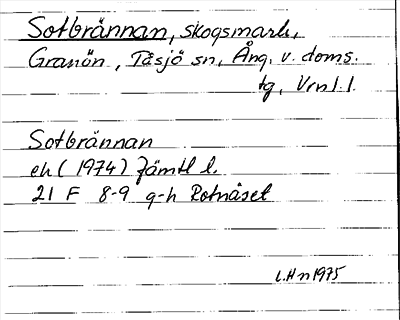 Sotbrännan, skogsmark,
Granön, Tåsjö sn, Ång. v. doms.
tg, Vrnl. l.
Sotbrännan
ek (1974) Jämtl l.
21 F 8-9 g-h Rotnäset
L.Hn 1975